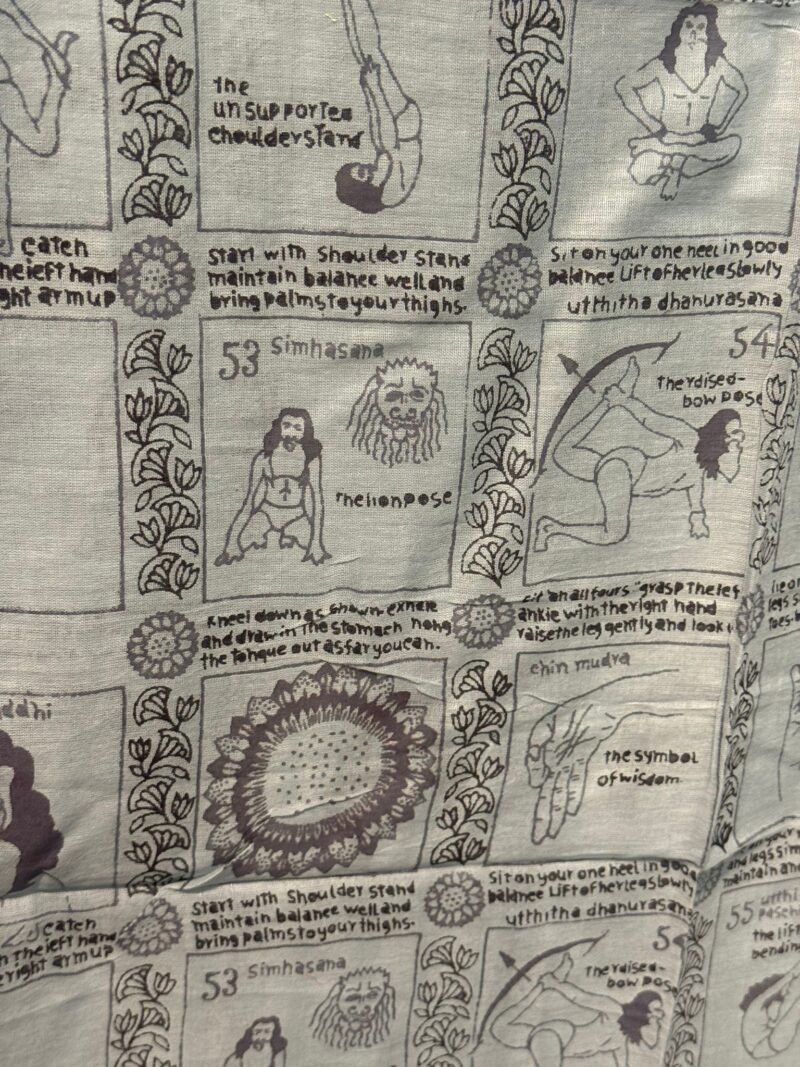 the
unsupported
choulderstand
catch
the left hand
right arm up
Start with Shoulder Stand
maintain balanee well and
bring palms to your thighs.
Sit on your one heel in good
balanee Lift of her leg slowly
utthitha dhanurasana
53 Simhasana
The lion pose
54
The rdised-
bow pose
Kneel down as shown exhale
and draw in the stomach hong
the tongue out as far you can.
"grasp the lef
ankie with the right hand
raise the leg gently and look
lie on
legs s
toes
ddhi
chin mudra
the symbol
of wisdom
catch
the left hand
right arm up
Start with Shoulder Stand
maintain balanee well and
bring palms to your thighs.
Sit on your one heel in good
balanee Lift of her leg slowly
utthitha dhanurasana
your
and legs sim
maintain an
53 Simhasana
5
The rdised-
bow pos
55 utthi
the lift
bendin